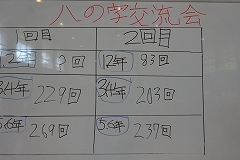 八の字交流会
1回目 2回目
12年 ?回 12年 83回
34年 229回 34年 203回
56年 269回 56年 237回